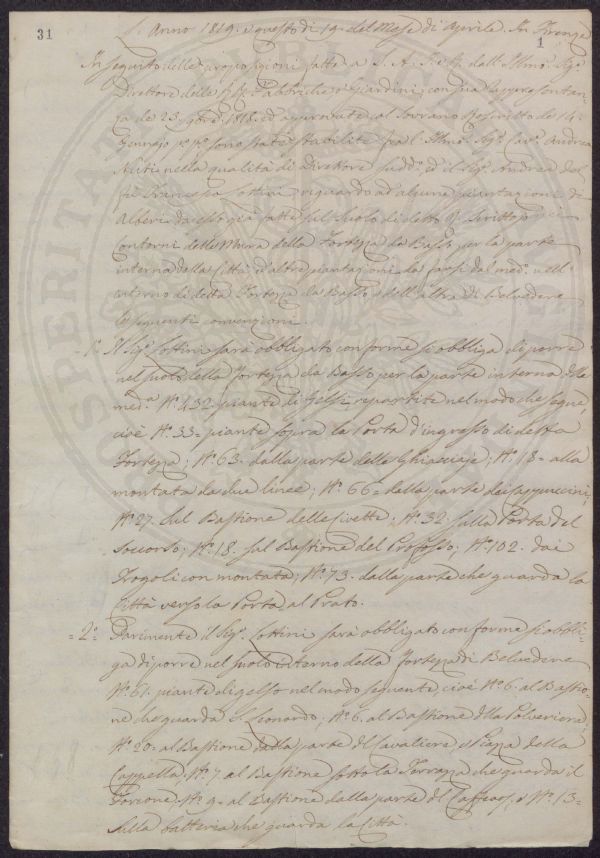 31
1
L'Anno 1819. e questo dì 19. del Mese di Aprile. In Firenze
In seguito delle proposizioni fatte a S. A. I. e R. dall' Illmo. Sigr.
Direttore delle RR. Fabbriche e Giardini con sua Rappresentan-
za de 23. 1818. ed approvate col Sovrano Rescritto de 14.
Gennajo sono state stabilite fra l'Illmo. Sigr. Cavr. Andrea
nella qualità di Direttore sudd.o ed il Sigr. Andrea del
fu Francesco Lottini riguardo ad alcune piantazioni di
Alberi da esso già fatte sul suolo di detto
contorni delle Mura della Fortezza da Basso per la parte
interna della Città e d'altre piantazioni da farsi dal med.o nell'
interno di detta Fortezza da Basso e dell'altra di Belvedere
le seguenti convenzioni.
1.o Il Sigr. Lottini sarà obbligato conforme si obbliga di porre
nel suolo della Fortezza da Basso per la parte interna della
med.a N.o 432. piante di Gelsi repartite nel modo che segue,
cioè N.o 33. piante sopra la Porta d'ingresso di detta
Fortezza; N.o 63. dalla parte delle Ghiacciaje; N.o 18. alla
montata da due linee; N.o 66. dalla parte dei Cappuccini;
N.o 27. sul Bastione delle Civette; N.o 32. sulla Porta del
Soccorso; N.o 18. sul Bastione del ; N.o 102. dai
Trogoli con montata; N.o 73. dalla parte che guarda la
Città verso la Porta al Prato.
= 2.o Parimente il Sigr. Lottini sarà obbligato conforme si obbli-
ga di porre nel suolo interno della Fortezza di Belvedere
N.o 61. piante di gelso nel modo seguente cioè N.o 6. al Bastio-
ne che guarda S. Leonardo; N.o 6. al Bastione della Polveriera;
N.o 20. al Bastione dalla parte del Cavaliere, e Piazza della
Cappella; N.o 7. al Bastione sotto la Terrazza che guarda il
Torrione; N.o 9. al Bastione dalla parte del e N.o 13.
sulla batteria che guarda la Città.